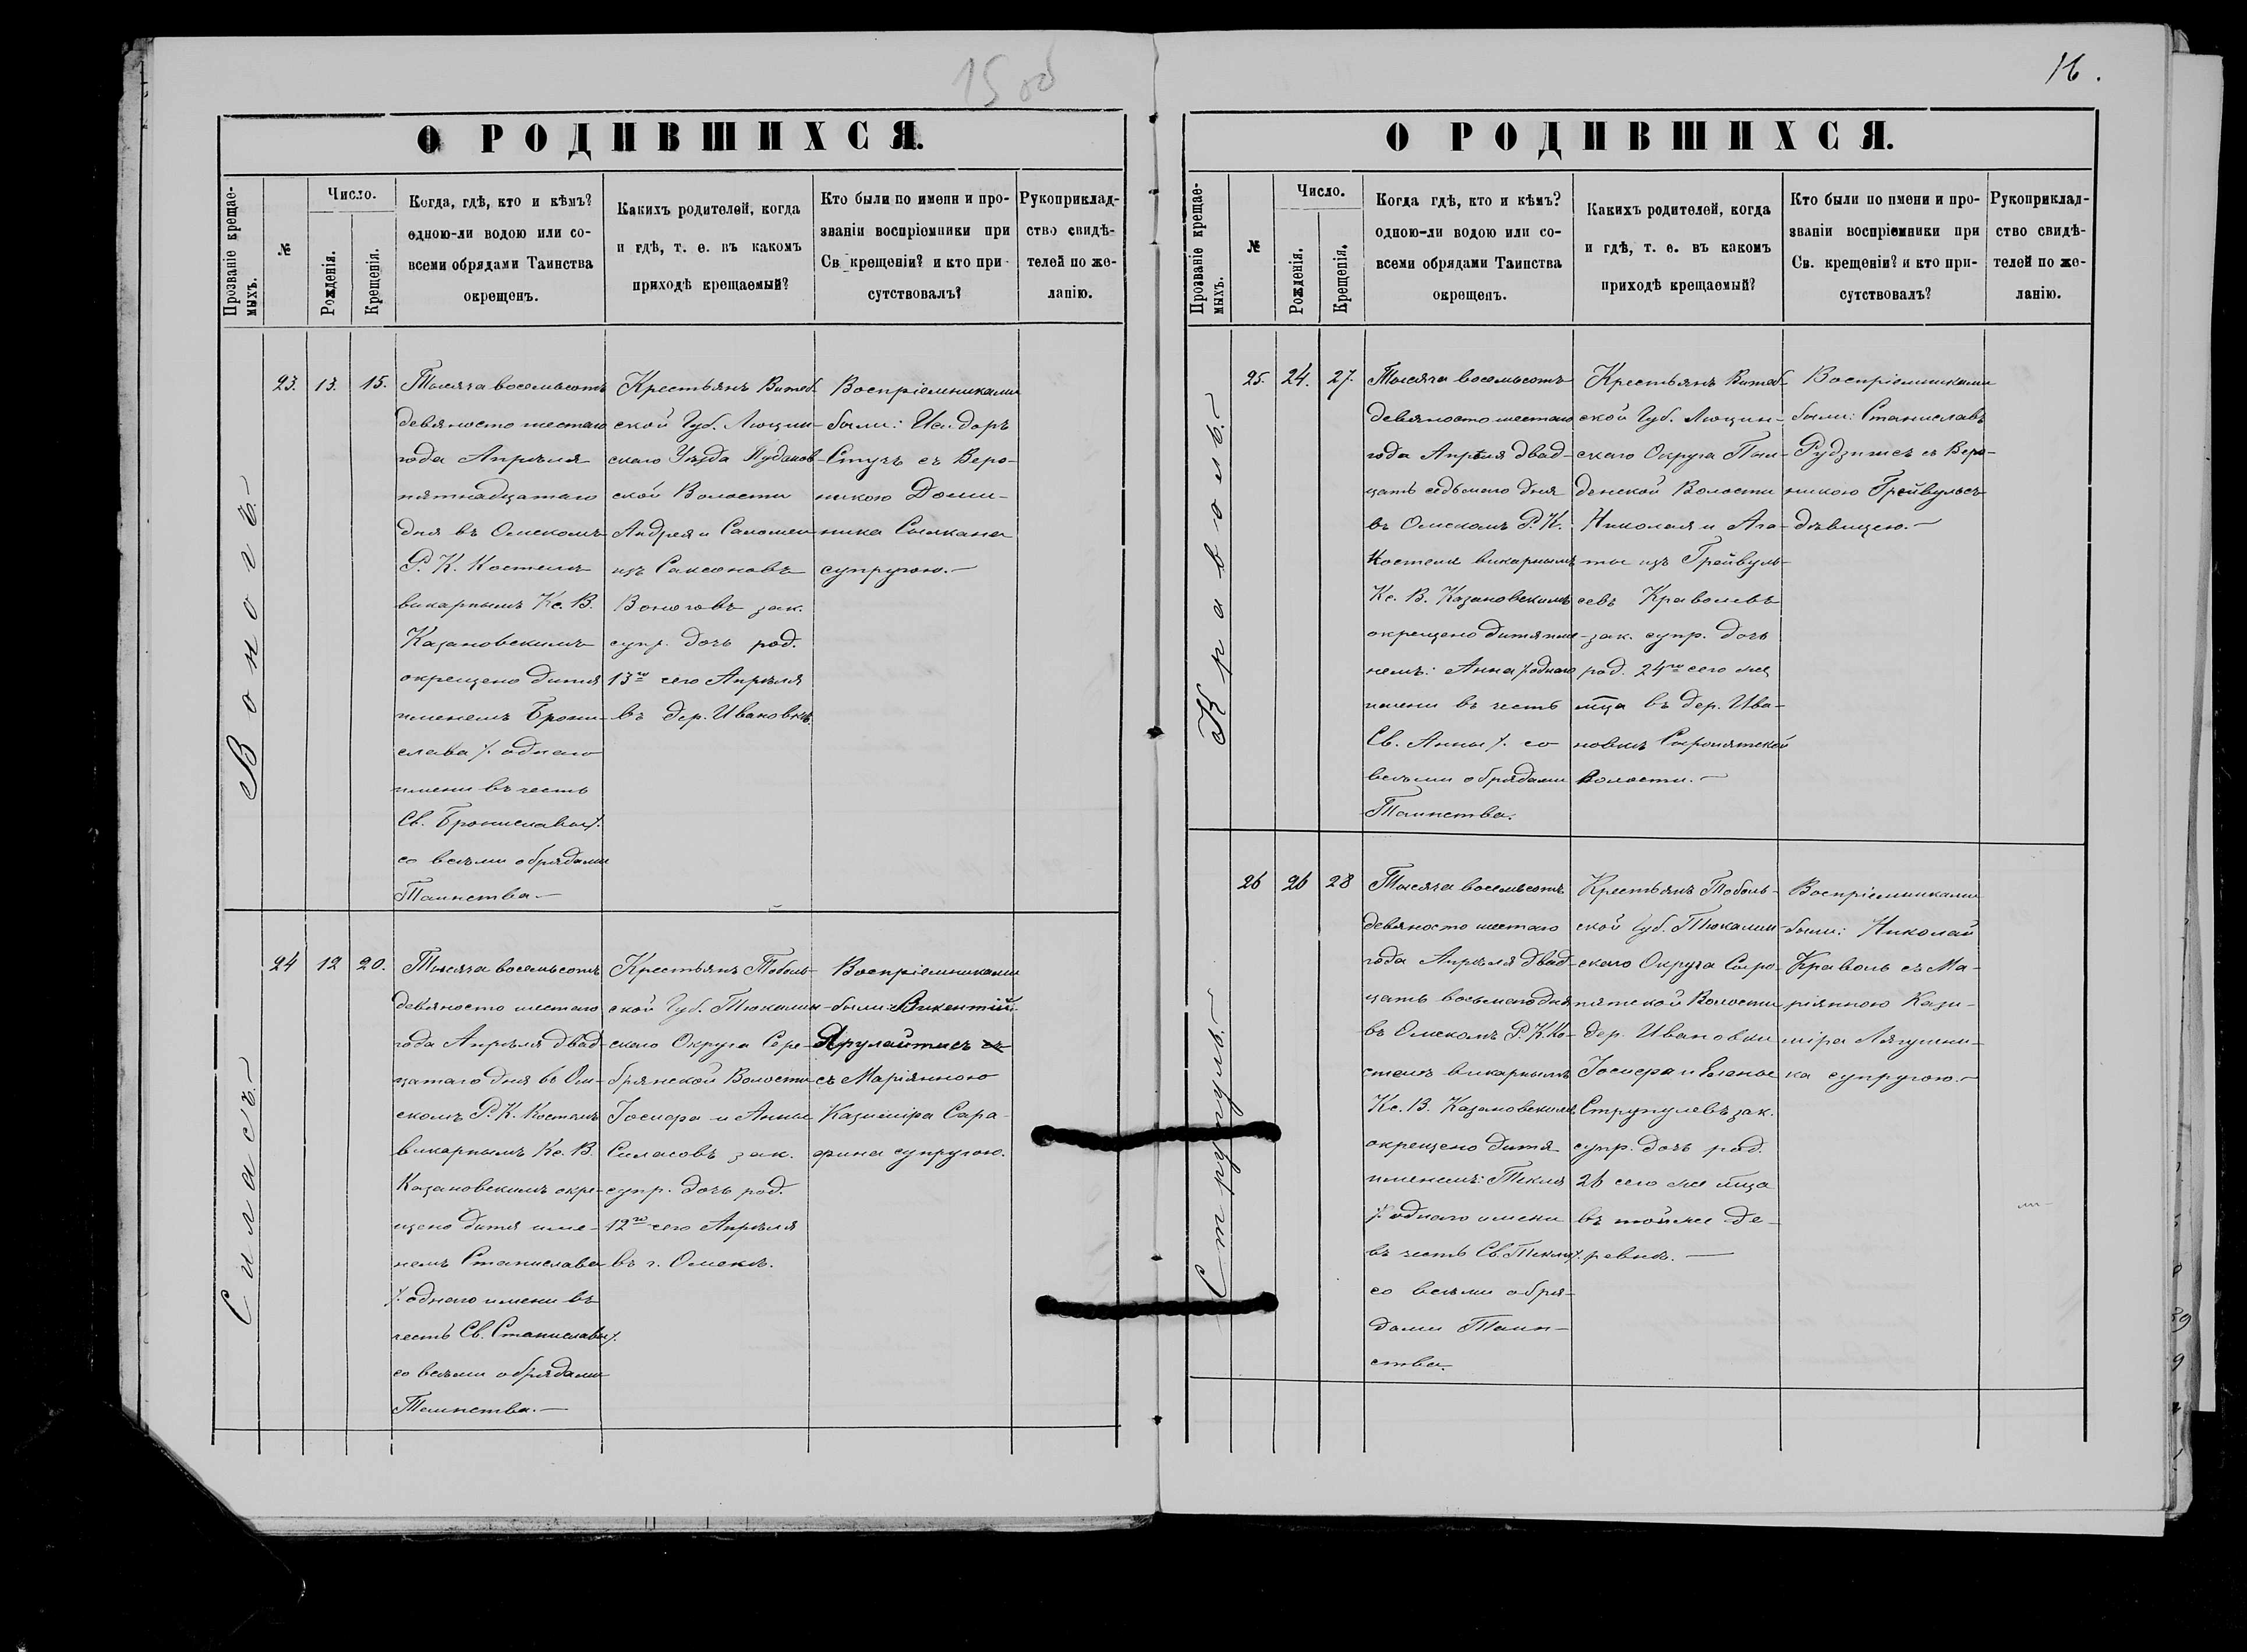 15 об
О РОДИВШИХСЯ.
Прозваніе крещае-
мыхъ.
№
Число.
Рожденія.
Крещенія.
Когда, гдѣ, кто и кѣмъ?
одною-ли водою или со-
всеми обрядами Таинства
окрещенъ.
Какихъ родителей, когда
и гдѣ, т. е. въ какомъ
приходѣ крещаемый?
Кто были по имени и про-
званіи воспріемники при
Св. крещеніи? и кто при-
сутствовалъ?
Рукоприклад-
ство свидѣ-
телей по же-
ланію.
Воногъ.
23.
13.
15.
Тысяча восемьсотъ
девяносто шестаго
года Апрѣля
пятнадцатаго
дня въ Омскомъ
Р. К. Костелѣ
викарнымъ Кс. В.
Казановскимъ
окрещено дитя
именемъ Брони-
слава /. однаго
имени въ честь
Св. Брониславы /.
со всѣми обрядами
Таинства.—
Крестьянъ Витеб-
ской Губ. Люцин-
скаго Уѣзда
ской Волости
Андрея и Саломеи
изъ Саксоновъ
Воноговъ зак.
супр. дочь род.
13го сего Апрѣля
въ дер. Ивановкѣ.
Воспріемниками
были: Исидоръ
Стучъ съ Веро-
никою Доми-
ника
супругою.—
Силасъ.—
24
12
20.
Тысяча восемьсотъ
девяносто шестаго
года Апрѣля двад-
цатаго дня въ Ом-
скомъ Р. К. Костелѣ
викарнымъ Кс. В.
Казановскимъ окре-
щено дитя име-
немъ Станислава
/. однаго имени въ
честь Св. Станиславы /.
со всѣми обрядами
Таинства.—
Крестьянъ Тоболь-
ской Губ. Тюкалин-
скаго Округа Сере-
брянской Волости
Іосифа и Анны
Силасовъ зак.
супр. дочь род.
12го сего Апрѣля
въ г. Омскѣ.
Воспріемниками
были: Викентій
Ярулайтисъ съ
съ Маріянною
Казиміра Сара-
фина супругою.
16.
О РОДИВШИХСЯ.
Прозваніе крещае-
мыхъ.
№
Число.
Рожденія.
Крещенія.
Когда гдѣ, кто и кѣмъ?
одною-ли водою или со-
всеми обрядами Таинства
окрещенъ.
Какихъ родителей, когда
и гдѣ, т. е. въ какомъ
приходѣ крещаемый?
Кто были по имени и про-
званіи воспріемники при
Св. крещеніи? и кто при-
сутствовалъ?
Рукоприклад-
ство свидѣ-
телей по же-
ланію.
Краволь.—
25.
24.
27.
Тысяча восемьсотъ
девяносто шестаго
года Апрѣля двад-
цать седьмого дня
въ Омскомъ Р. К.
Костелѣ викарнымъ
Кс. В. Казановскимъ
окрещено дитя име-
немъ: Анна /. однаго
имени въ честь
Св. Анны /. со
всѣми обрядами
Таинства.
Крестьянъ Витеб-
ской Губ. Люцин-
скаго Округа Пыл-
денской Волости
Николая и Ага-
ты изъ Грейвуль-
севъ Кравольвъ
зак. супр. дочь
род. 24го сего мѣ-
сяца въ дер. Ива-
новкѣ Сыропятской
Волости.—
Воспріемниками
были: Станиславъ
Рудзитсъ съ Веро-
никою Грейвульсъ
дѣвицею.—
Струпуль.—
26
26
28
Тысяча восемьсотъ
девяносто шестаго
года Апрѣля двад-
цать восьмого дня
въ Омскомъ Р. К. Ко-
стелѣ викарнымъ
Кс. В. Казановскимъ
окрещено дитя
именемъ: Текля
/. однаго имени
въ честь Св. Теклы /.
со всѣми обря-
дами Таин-
ства.
Крестьянъ Тоболь-
ской Губ. Тюкалин-
скаго Округа Сыро-
пятской Волости
дер. Ивановки
Іосифа и Елены
Струпулевъ зак.
супр. дочь род.
26 сего же мѣсца
въ той же де-
ревнѣ.—
Воспріемниками
были: Николай
Краволь съ Ма-
ріянною Кази-
міра Лягушни-
ка супругою.—